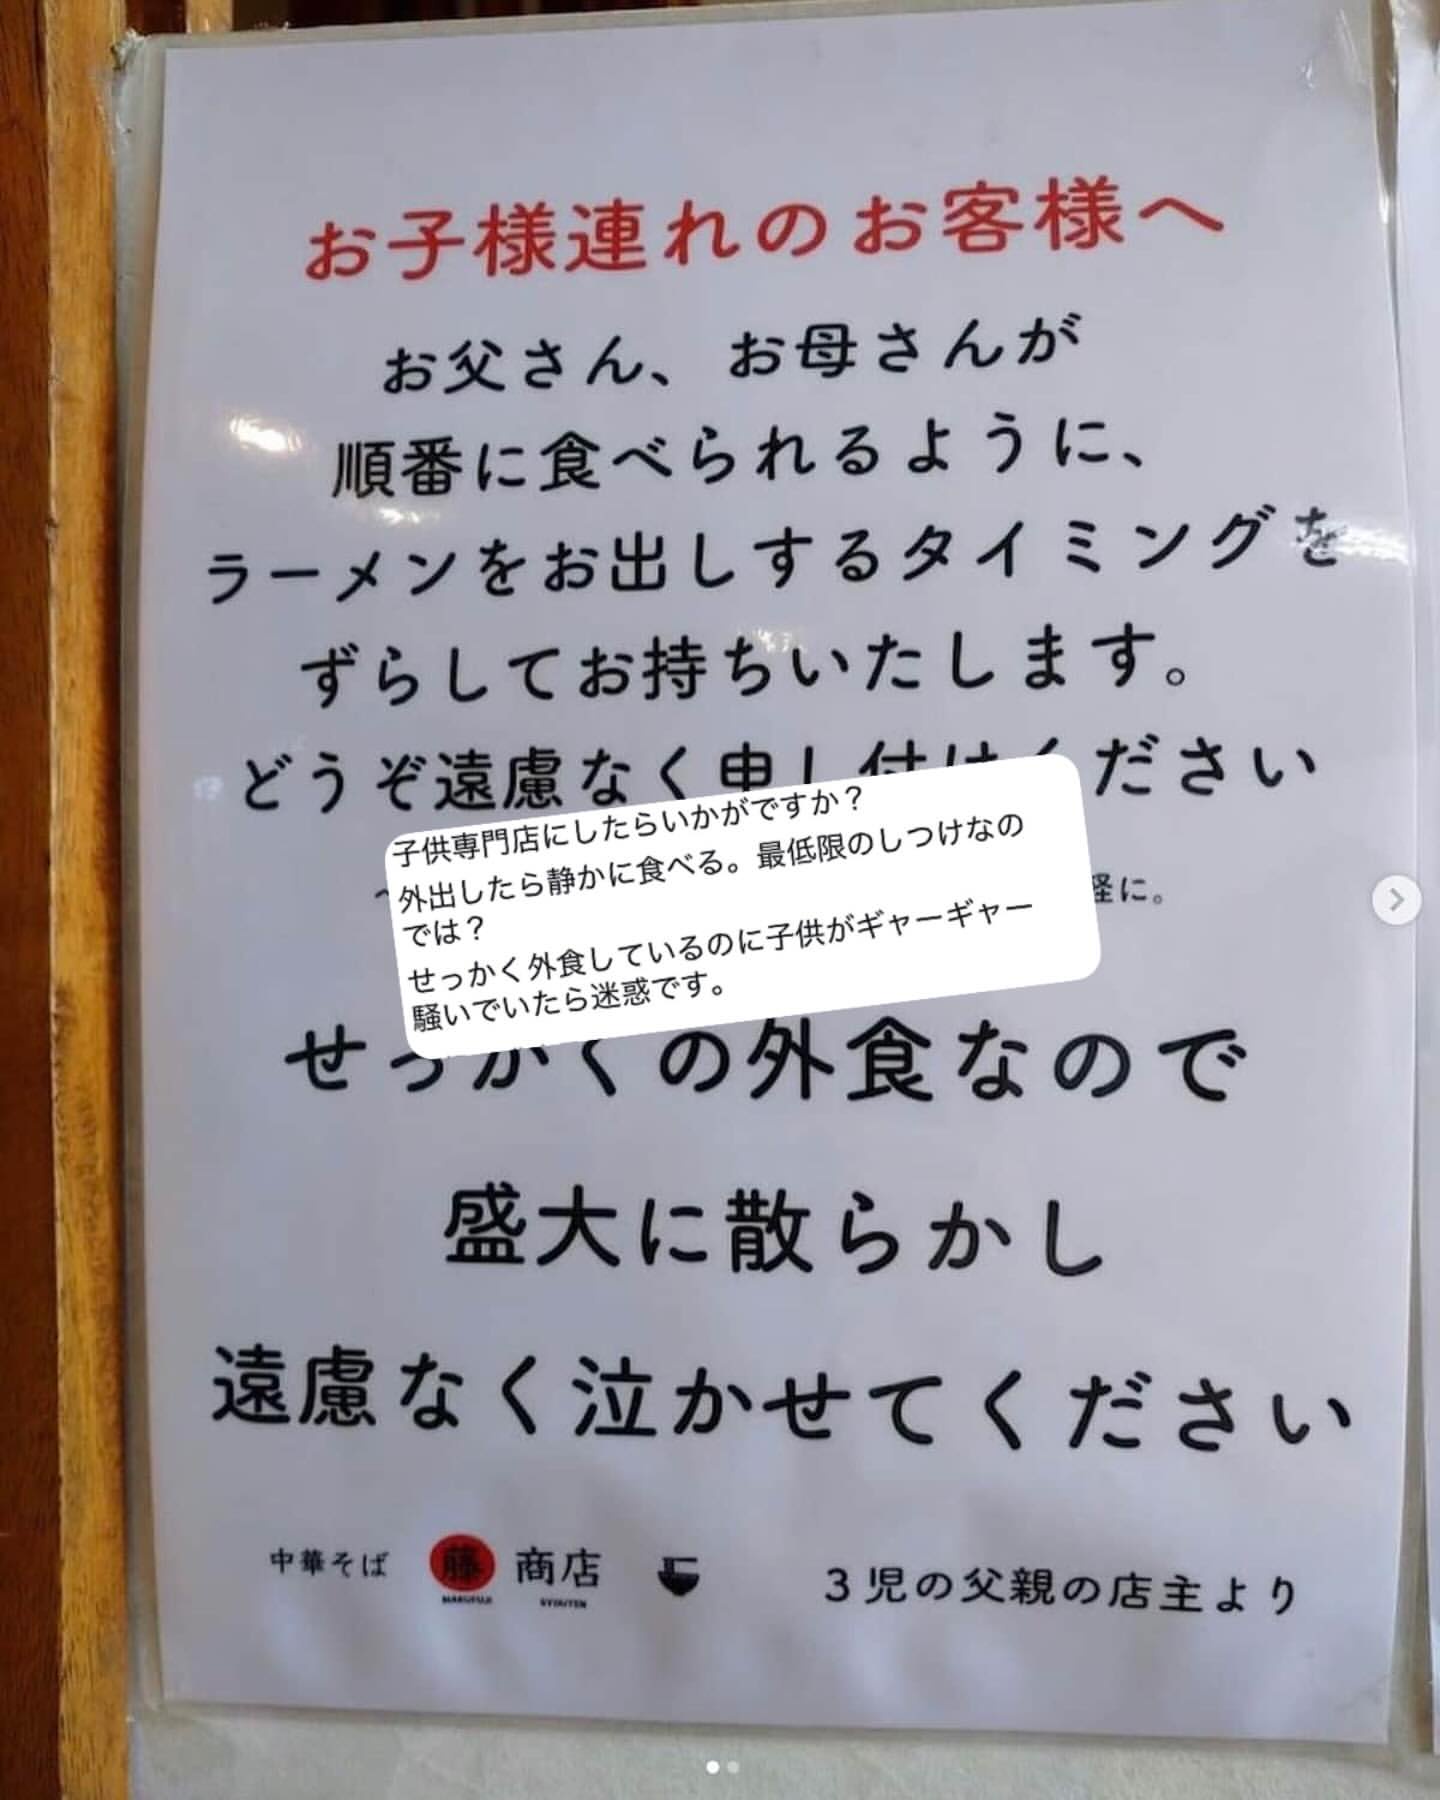 お子様連れのお客様へ
お父さん、お母さんが
順番に食べられるように、
ラーメンをお出しするタイミングを
ずらしてお持ちいたします。
どうぞ遠慮なく申し付けください
子供専門店にしたらいかがですか？
外出したら静かに食べる。最低限のしつけなの
では？
せっかく外食しているのに子供がギャーギャー
騒いでいたら迷惑です。
軽に。
せっかくの外食なので
盛大に散らかし
遠慮なく泣かせてください
中華そば 藤 商店 3児の父親の店主より
MARUFUJI SYOUTEN